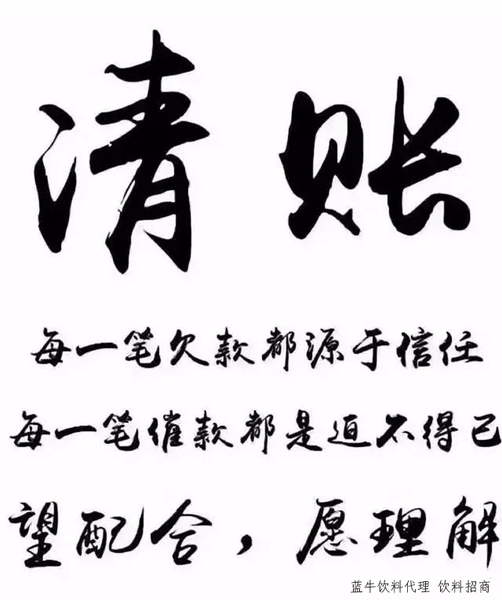 清账
每一笔欠款都源于信任
每一笔催款都是迫不得已
望配合，愿理解
蓝牛饮料代理 饮料招商